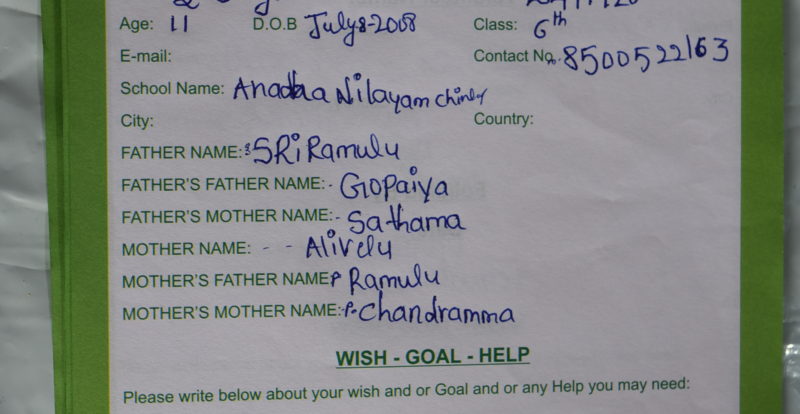 Age: 11 D.O.B July 8-2008 Class: 6th
E-mail: Contact No. 8500522163
School Name: Anadha Nilayam
City: Country:
FATHER NAME: SRi Ramulu
FATHER'S FATHER NAME:- Gopaiya
FATHER'S MOTHER NAME:- Sathama
MOTHER NAME: - - Alivelu
MOTHER'S FATHER NAME Ramulu
MOTHER'S MOTHER NAME:- Chandramma
WISH - GOAL - HELP
Please write below about your wish and or Goal and or any Help you may need: